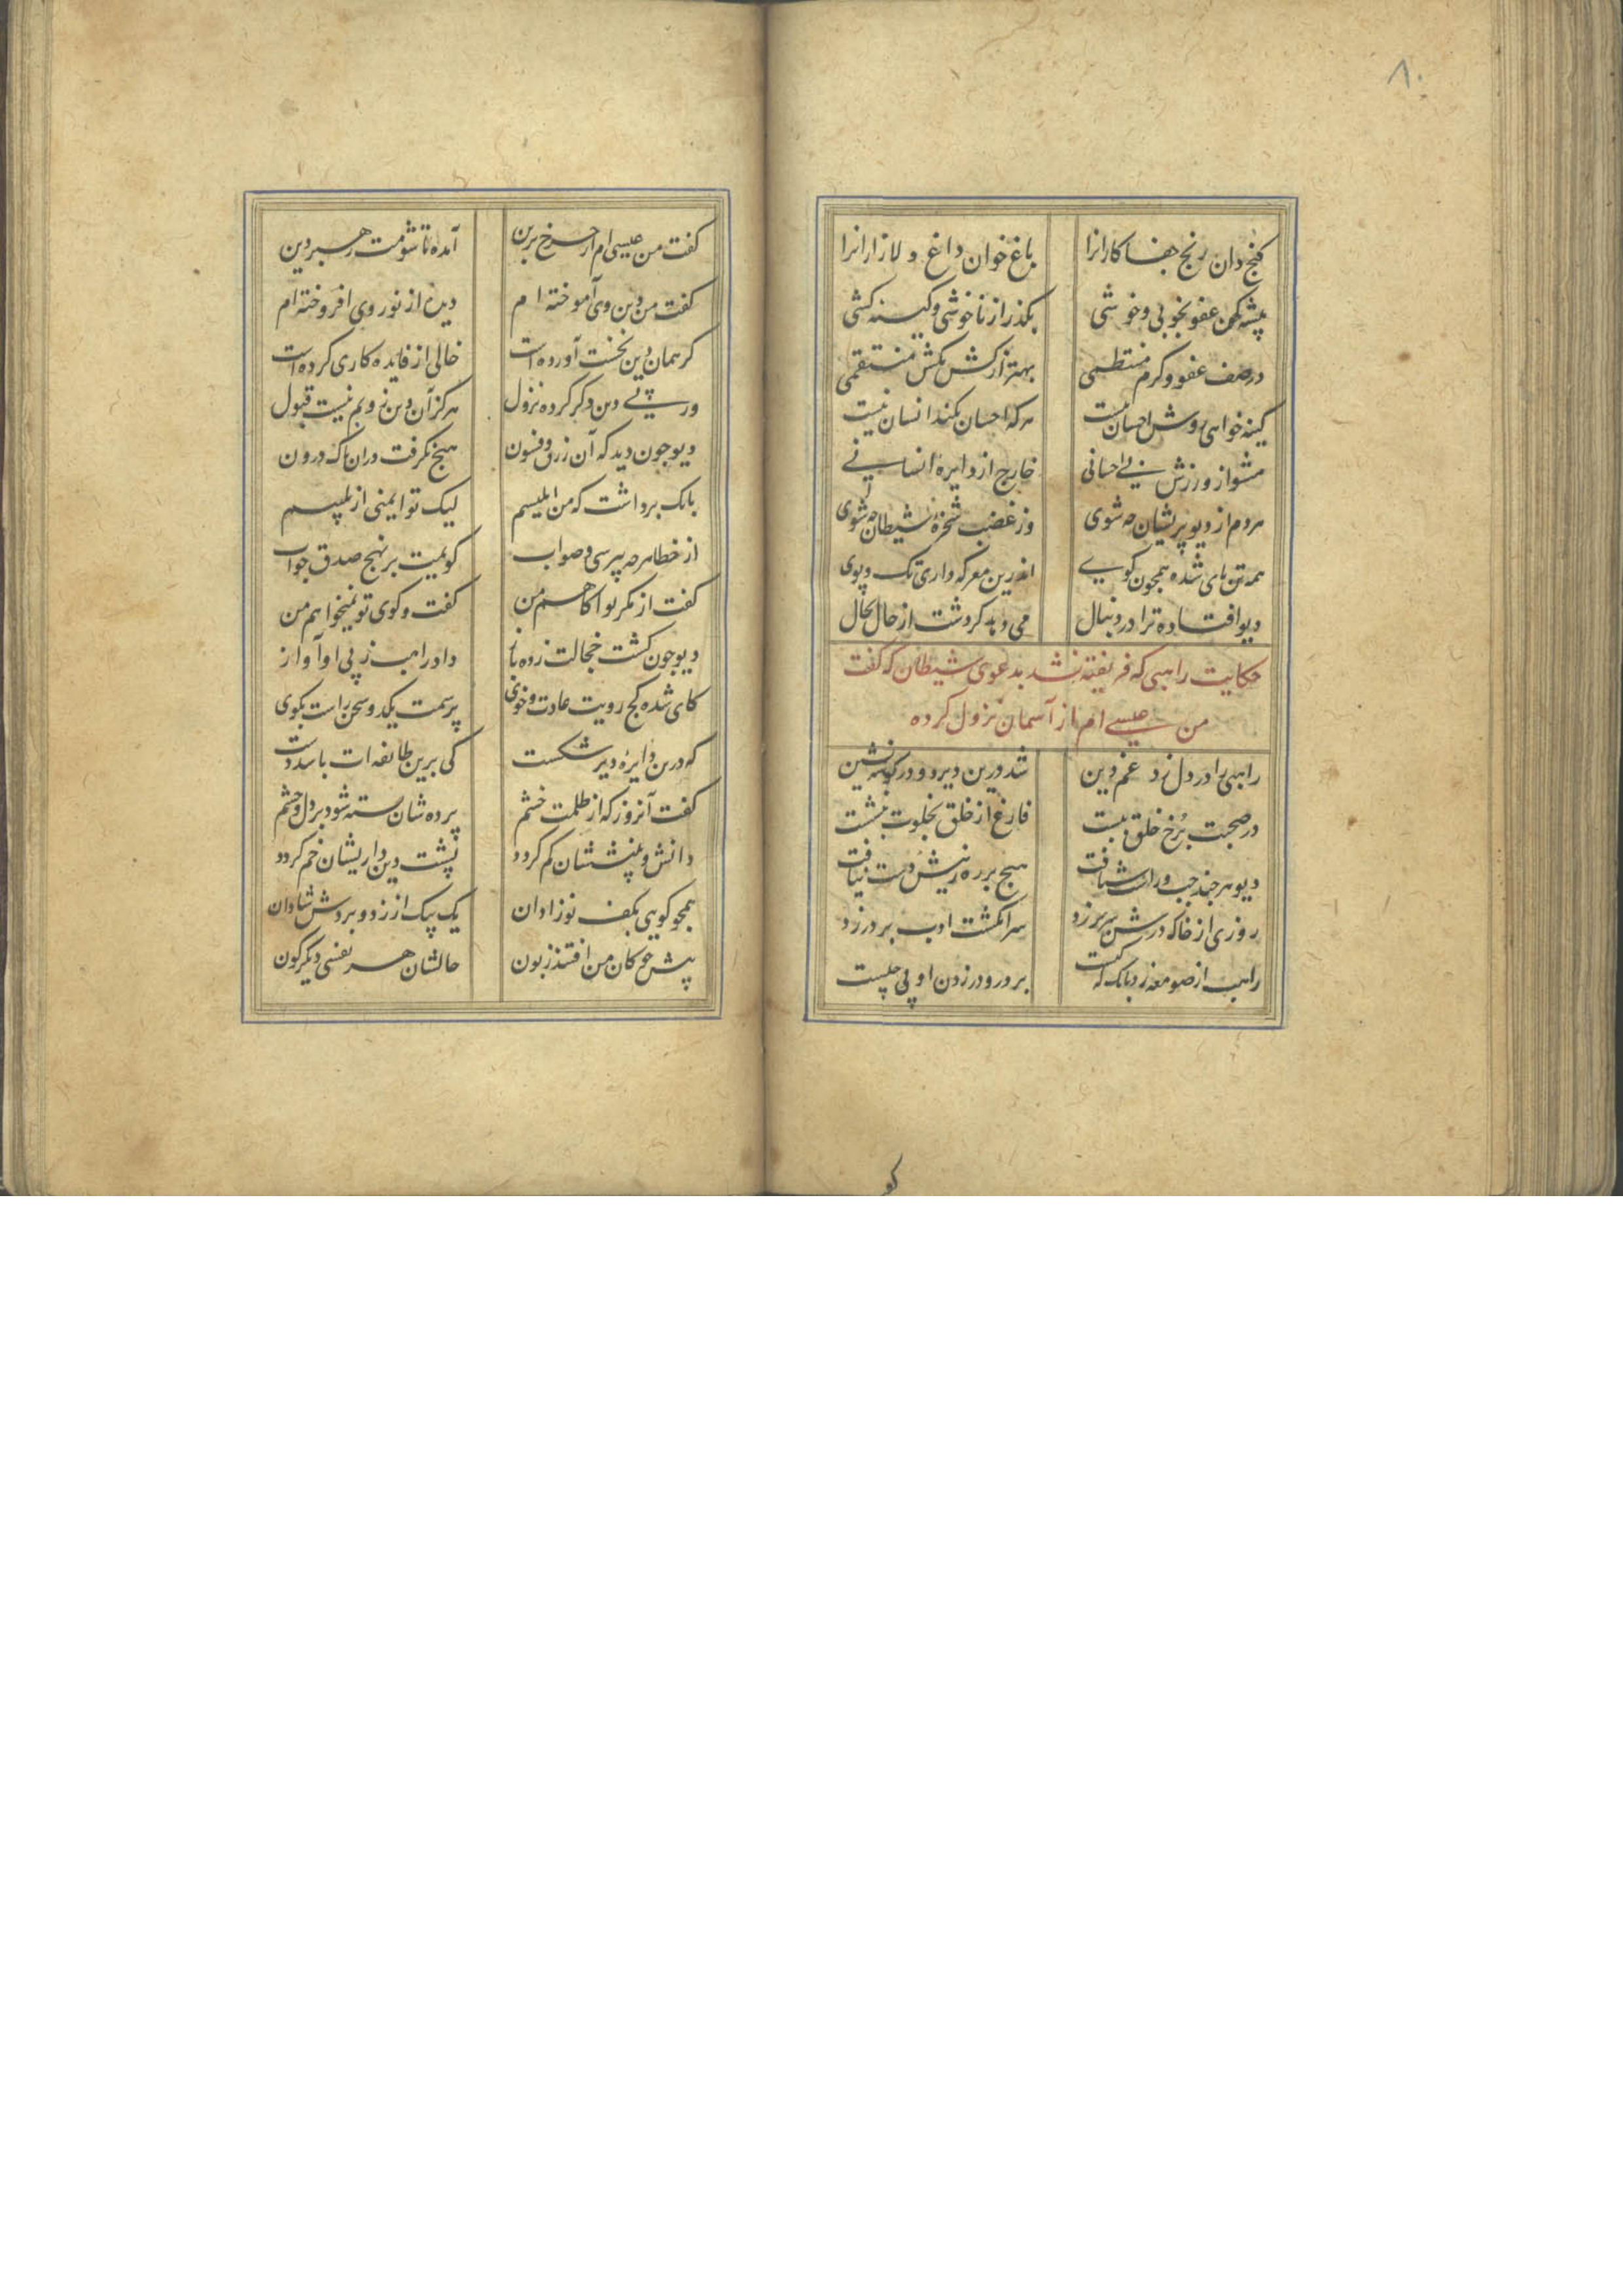 ۸۰
کنج دان رنج جفا کارانرا باغ خوان داغ دلازارانرا
پیشه کن عفو بخوبی و خوشی بکذر از ناخوشی و کینه کشی
در صف عفو و کرم منتظمی بهتر از کش مکش منتقمی
کینه خواهی روش احسان نیست هر که احسان نکند انسان نیست
مشو از ورزش بی احسانی خارج از دایره انسانی
هر دم از دیو پریشان چه شوی وز غضب سخره شیطان چه شوی
همه تن پای شده همچون کویی اندرین معرکه داری تک و پوی
دیو افتاده ترا در دنبال می دهد کردشت از حال بحال
حکایت راهبی که فریفته نشد بدعوی شیطان که کفت
من عیسی ام از آسمان نزول کرده
راهبی را در دل زد غم دین شد درین دیر دو در کوشه نشین
در صحبت برخ خلق ببست فارغ از خلق بخلوت بنشست
دیو هر چند چپ و راست شتافت هیچ بر رهزنیش دست نیافت
روزی از خاک درش سر بر زد سر انکشت ادب بر در زد
راهب از صومعه زد بانک که کیست بر در و در زدن او پی چیست
کفت من عیسی ام از چرخ برین آمده تا شومت رهبر دین
کفت من دین وی آموخته ام دیده از نور وی افروخته ام
کر همان دین نخست آورده است خالی از فایده کاری کرده است
ور پی دین دکر کرده نزول هرکز آن دین ز ویم نیست قبول
دیو چون دید که آن زرق و فسون هیچ نکرفت در آن پاک درون
بانک برداشت که من ابلیسم لیک تو ایمنی از تلبیسم
از خطا هر چه بپرسی و صواب کویمت بر نهج صدق جواب
کفت از مکر تو آکاهم من کفت و کوی تو نمیخواهم من
دیو چون کشت خجالت زده باز داد راهب ز پی او آواز
کای شده کج رویت عادت و خوی پرسمت یکدو سخن راست بکوی
که درین دایره دیر شکست کی برین طایفه ات باشد دست
کفت آنروز که از ظلمت خشم پرده شان بسته شود بر دل و چشم
دانش و بینششان کم کردد پشت دین داریشان خم کردد
همچو کویی بکف نوزادان یک بیک از زد و بردش شادان
پیش چوکان من افتند زبون حالشان هر نفسی دیکرکون